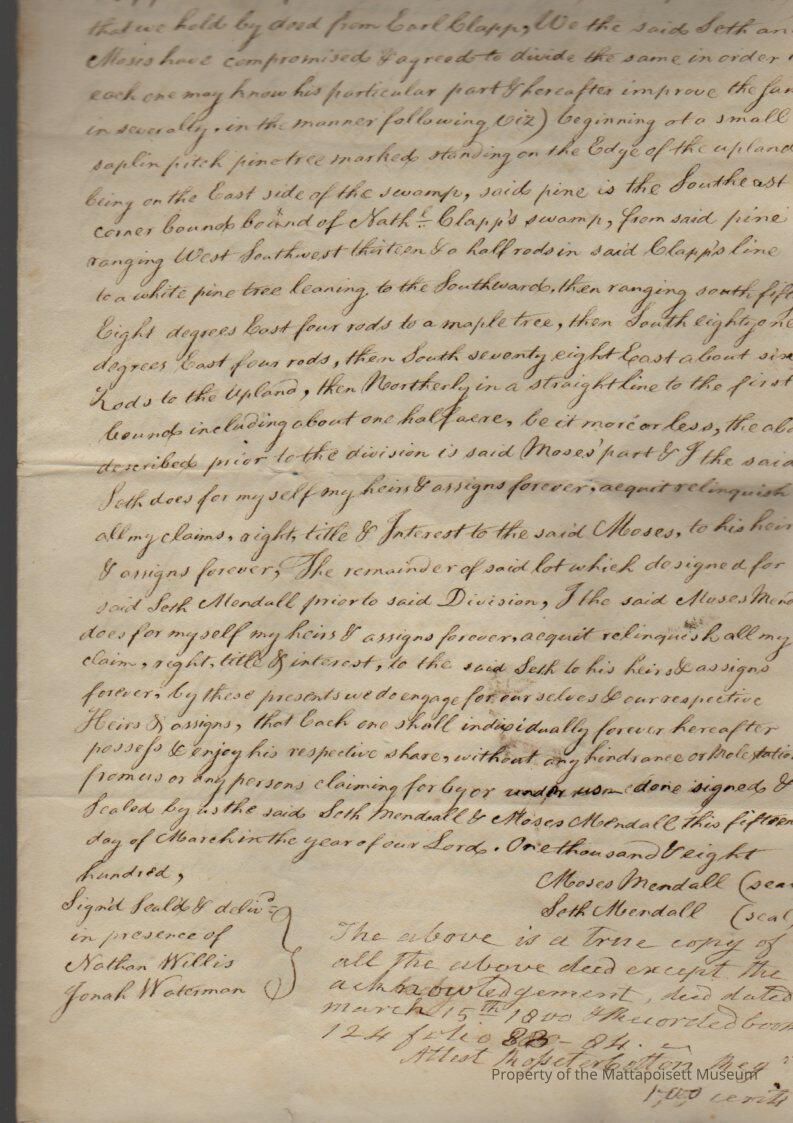 that we hold by deed from Earl Clapp, We the said Seth an
Moses have compromised & agreed to divide the same in order
each one may know his particular part & hereafter improve the sam
in severally, in the manner following Viz) beginning at a small
saplin pitch pine tree marked standing on the Edge of the upland
being on the East side of the swamp, said pine is the Southeast
corner bound bound of Nathl. Clapp's swamp, from said pine
ranging West Southwest thirteen & a half rods in said Clapp's line
to a white pine tree leaning to the Southward, then ranging south fift
Eight degrees East four rods to a maple tree, then South eighty one
degrees East four rods, then South seventy eight East about six
Rods to the Upland, then Northerly in a straight line to the first
bound including about one half acre, be it more or less, the abo
described prior to the division is said Moses' part & I the said
Seth does for my self my heirs & assigns forever, acquit relinquish
all my claims, right, title & Interest to the said Moses, to his heir
& assigns forever, The remainder of said lot which designed for
said Seth Mendall prior to said Division, I the said Moses Mend
does for my self my heirs & assigns forever, acquit relinquish all my
claim, right, title & interest, to the said Seth to his heirs & assigns
forever, by these presents we do engage for our selves & our respective
Heirs & assigns, that Each one shall individually forever hereafter
possess & enjoy his respective share, without any hindrance or Molestation
from us or any persons claiming for by or under us done signed &
Sealed by us the said Seth Mendall & Moses Mendall this fifteen
day of March in the year of our Lord. One thousand & eight
hundred,
Moses Mendall (sea
Seth Mendall (seal
Sign'd Seald & delivd
in presence of
Nathan Willis
Jonah Waterman
The above is a true copy of
all the above deed except the
acknowledgement, deed dated
march 15th 1800 & Recorded book
124 folio 83 - 84.
Attest Rossiter Cotton Regr
cents
Property of the Mattapoisett Museum